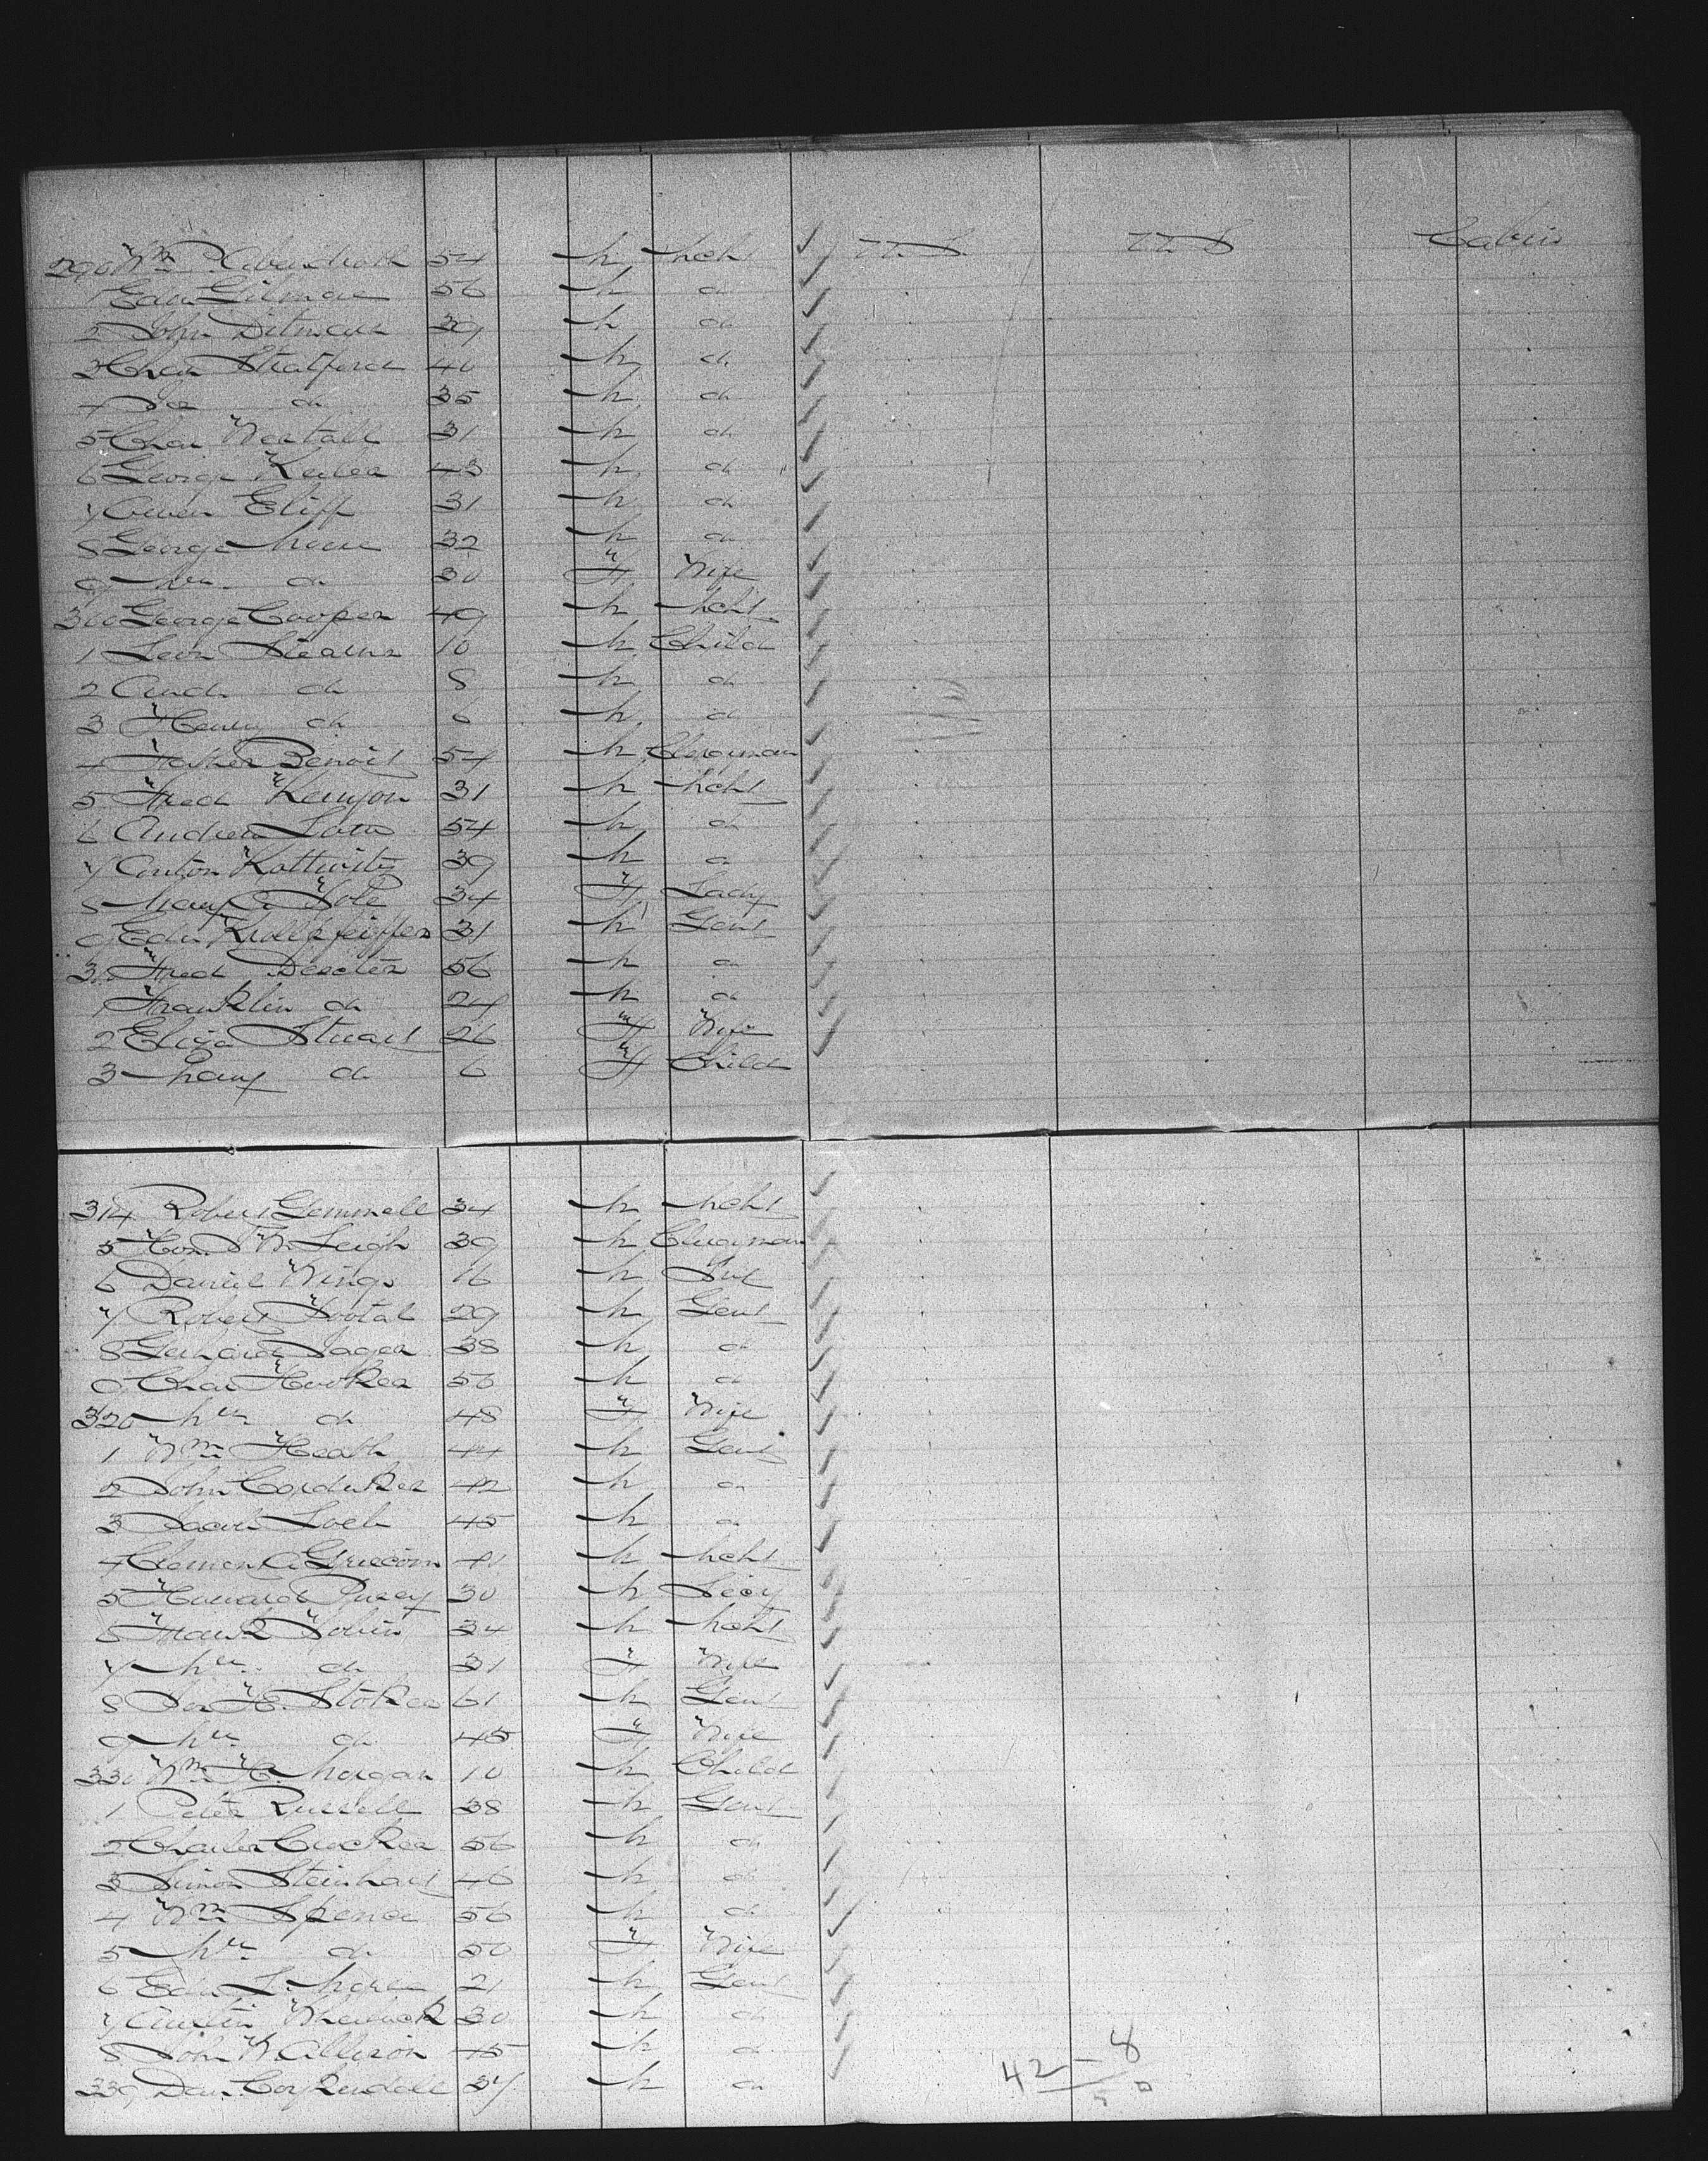 290 Wm P Abendroth 54 M Mcht U.S. U.S. Cabin
1 Edw Gilmore 56 M do
2 John Ditmars 39 M do
3 Chas Stratford 40 M do
4 do 35 M do
5 Chas Westall 31 M do
6 George Keiler 43 M do
7 Owen Eliff 31 M do
8 George 32 M do
9 Mrs do 30 F Wife
300 George Cooper 49 M Mcht
1 Leon Stearns 10 M Child
2 And. do 8 M do
3 Henry do 6 M do
4 Father Benoit 54 M Clergman
5 Fred Kenyon 31 M Mcht
6 Andrew 54 M do
7 Anton Kottwitz 39 M do
8 Mary A 34 F Lady
9 Edw Krollpfeiffer 31 M Gent
Fred Dexter 56 M do
1 Franklin do 24 M do
2 Eliza Stuart 26 F Wife
3 Mary do 6 F Child
314 Robert Gemmell 34 M Mcht
5 Hon J W Leigh 39 M Clergman
6 Daniel Wing 16 M
7 Robert Tootal 29 M Gent
8 Gerhard Jager 38 M do
9 Chas Hooker 56 M do
320 Mrs do 48 F Wife
1 Wm Heath 44 M Gent
2 John Cordukes 42 M do
3 Jacob Loeb 45 M do
4 Clement A Griscom 41 M Mcht
5 Howard Pusey 30 M Secy
6 Frank Tobin 34 M Mcht
7 Mrs do 31 F Wife
8 H. Stokes 61 M Gent
9 Mrs do 45 F Wife
330 Wm H. Morgan 10 M Child
1 Peter Russell 38 M Gent
2 Charles Crocker 56 M do
3 Simon Steinhart 46 M do
4 Wm Spence 56 M do
5 Mrs do 50 F Wife
6 Edw 21 M Gent
7 Austin Sherlock 30 M do
8 John W Allison 45 M do
339 Dan. Coykendall 37 M do
42 – 8
50